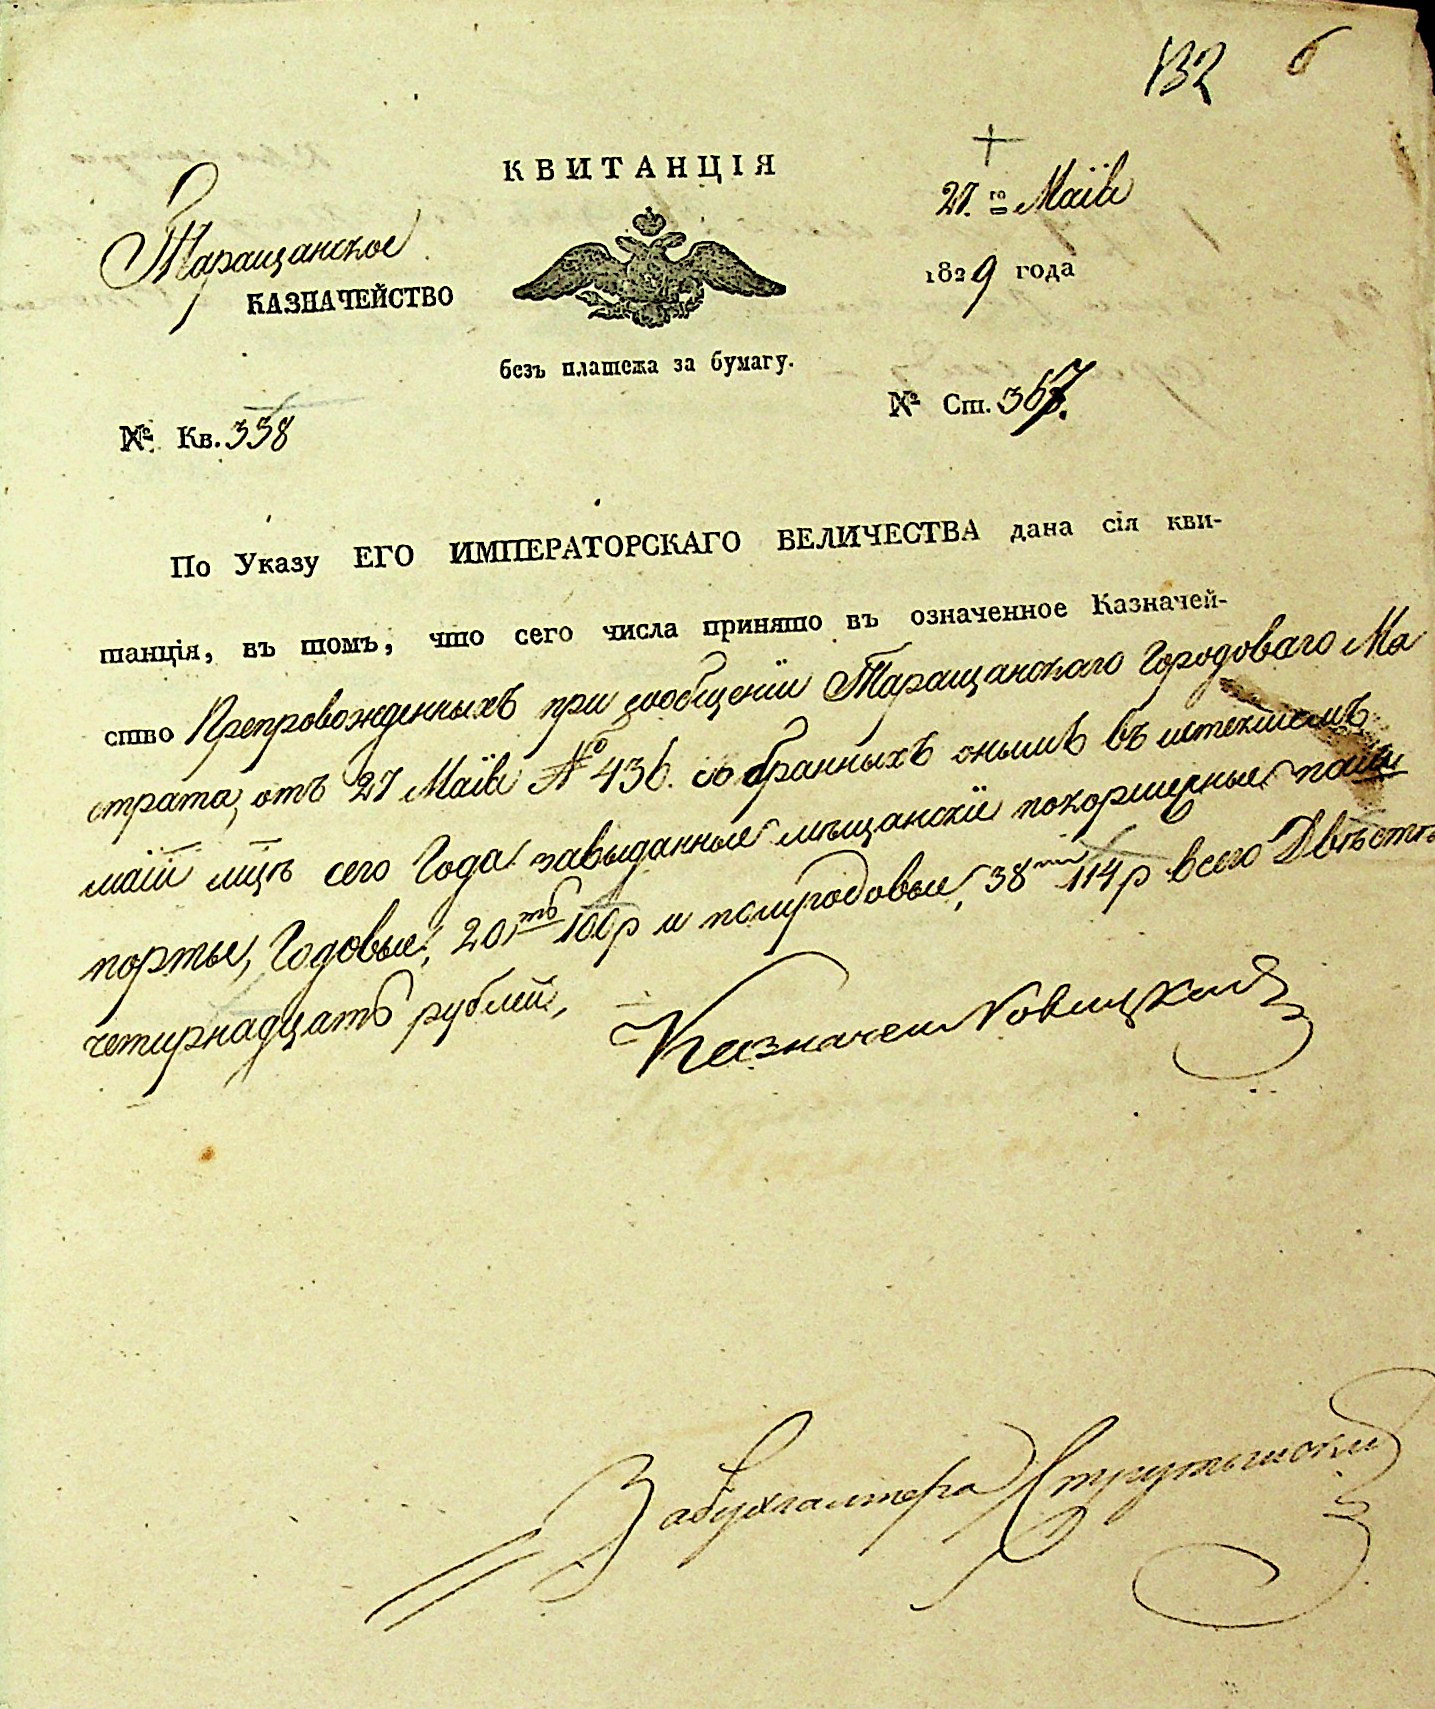 132 6
КВИТАНЦІЯ
27.го Маія
Таращанское
КАЗНАЧЕЙСТВО
1829 года
безъ платежа за бумагу.
№ Кв. 338
№ Ст. 367.
По Указу ЕГО ИМПЕРАТОРСКАГО ВЕЛИЧЕСТВА дана сія кви-
танція, въ томъ, что сего числа принято въ означенное Казначей-
ство Препровожденныхъ при сообщеніи Таращанского Городоваго Ма
страта, отъ 27 Маія № 436. собранныхъ онымъ въ истекшемъ
маіи мцѣ сего Года завыданные мѣщанскіе покормежные паш
порты, Годовые, 20ть 100р и полугодовые, 38мь 114р всего Двѣстѣ
четирнадцать рублей,
Казначей Новицкий
За бухгалтера Струтынский